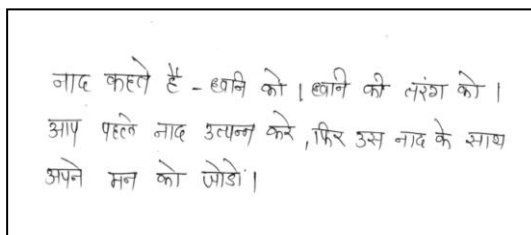 नाद कहते हैं - ध्वनि को । ध्वनि की तरंग को ।
आप पहले नाद उत्पन्न करे , फिर उस नाद के साथ
अपने मन को जोडो ।